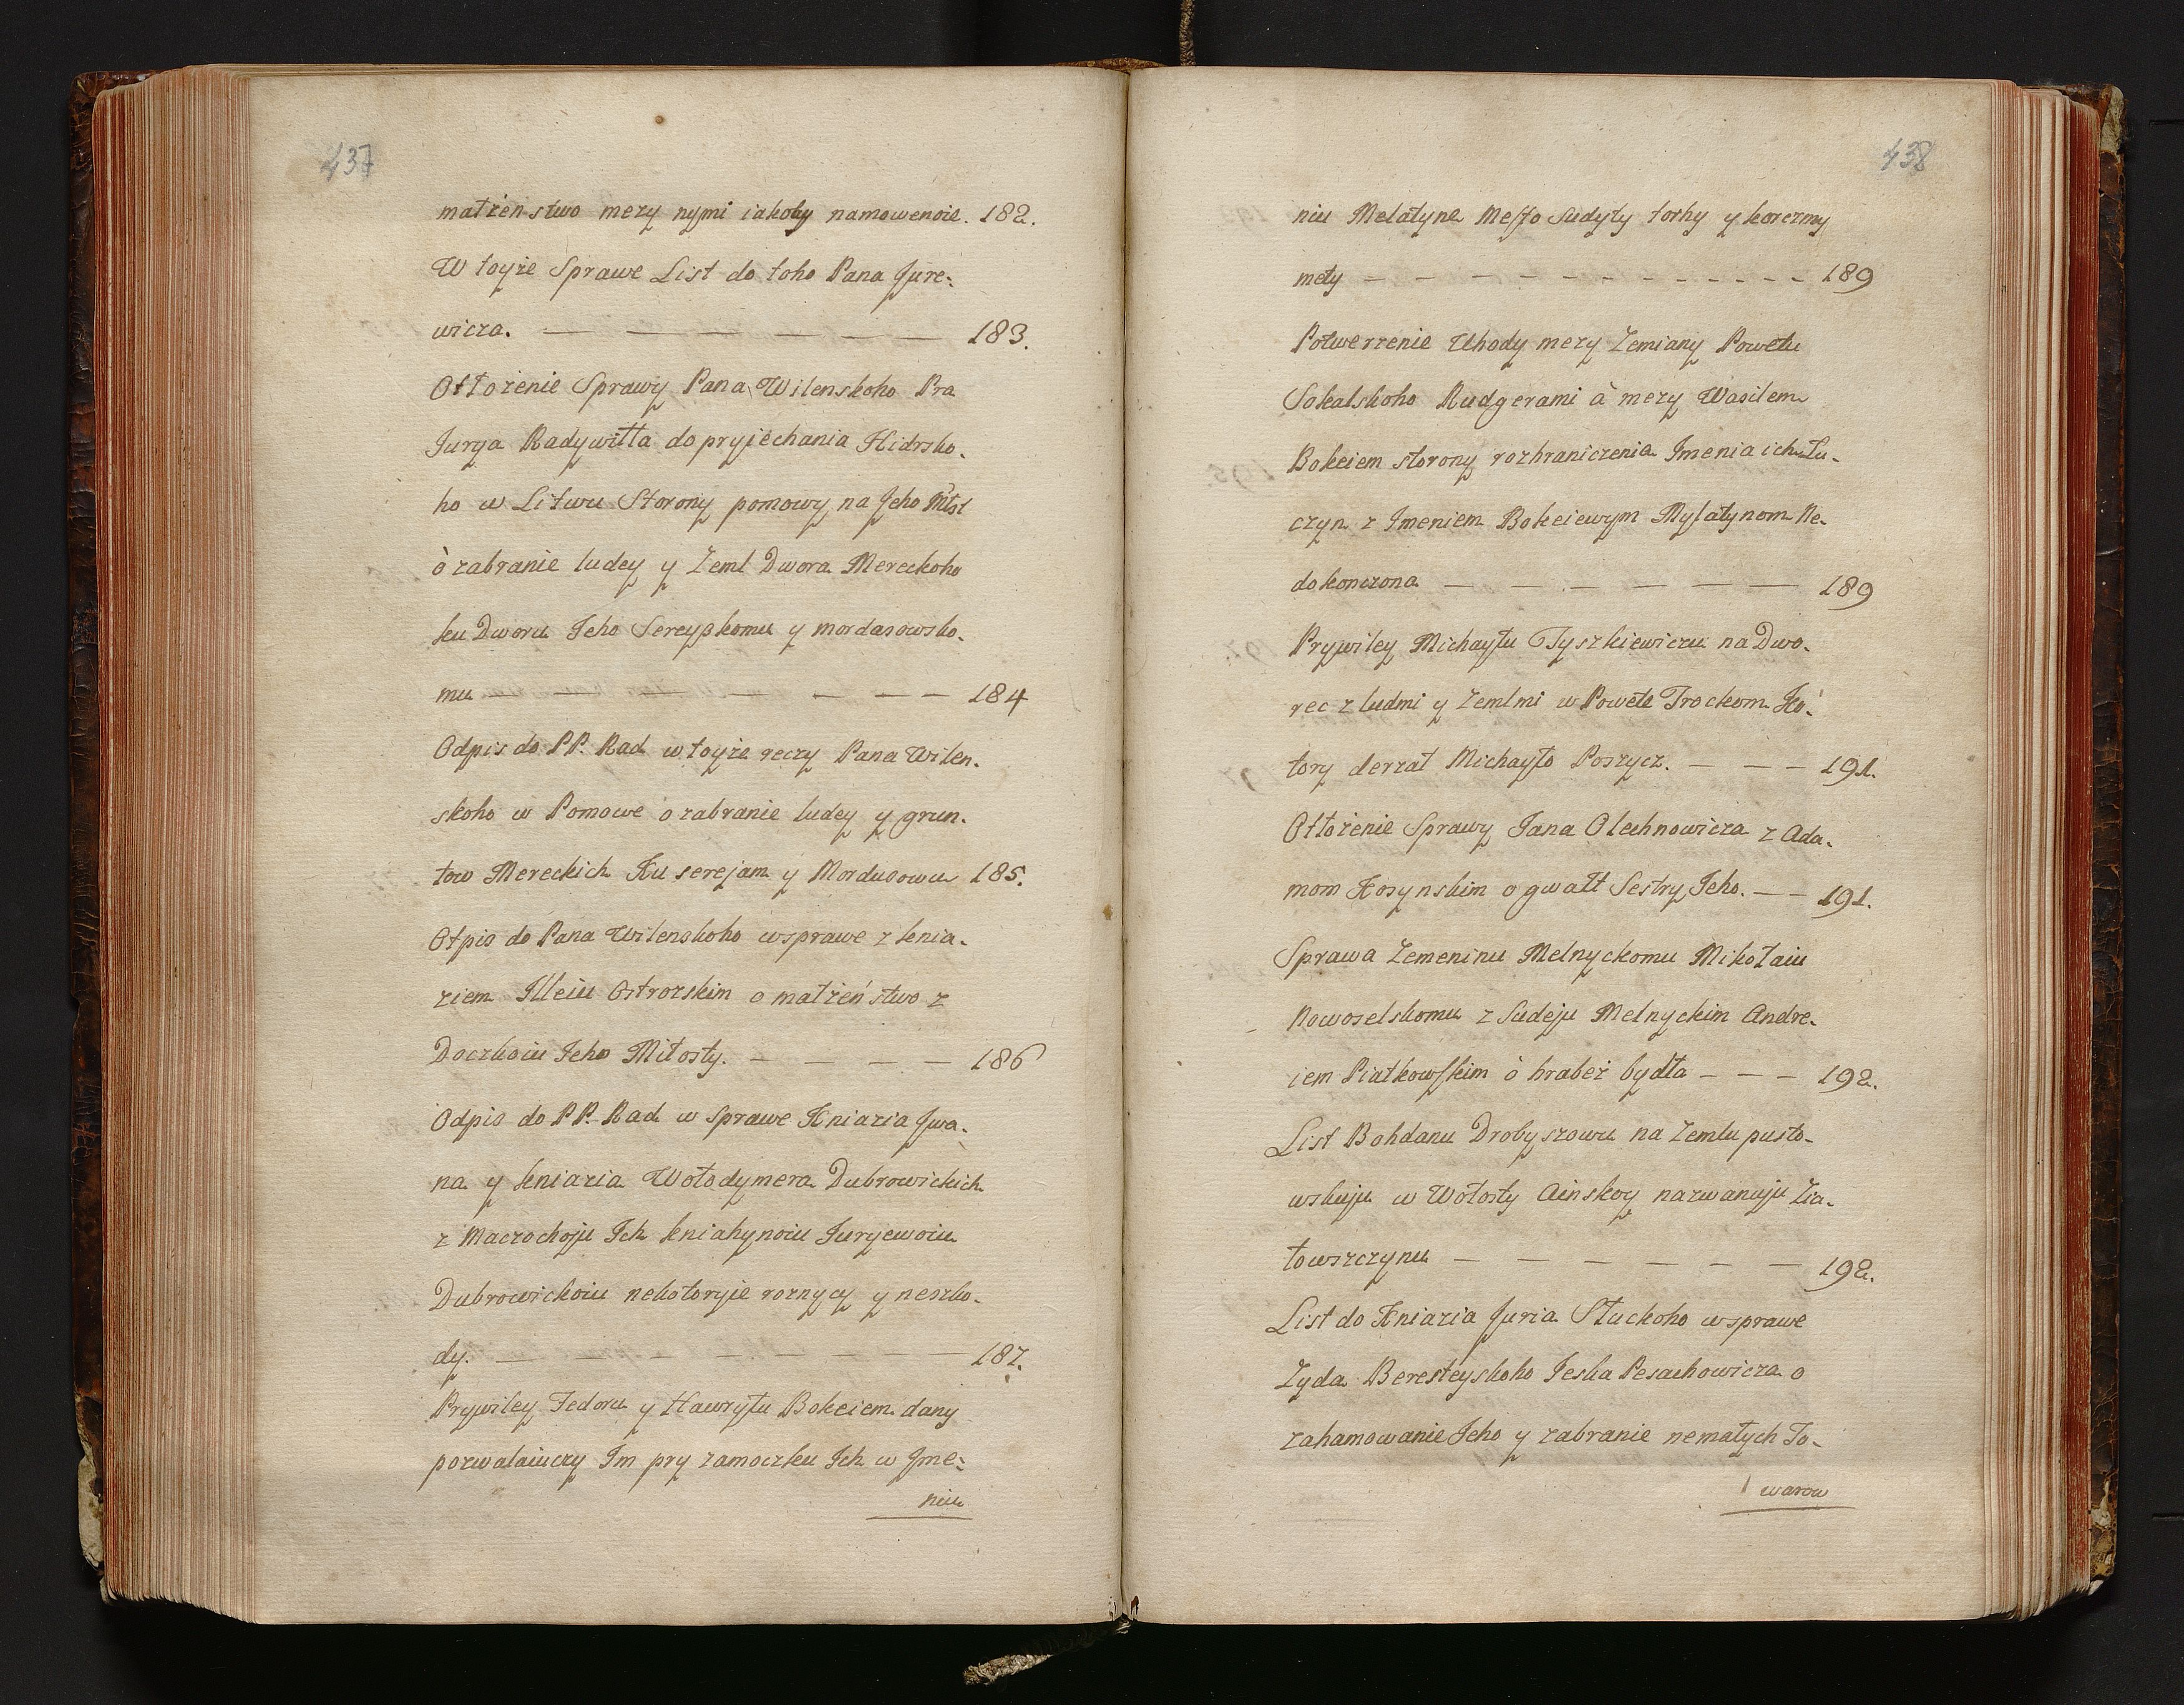 437
małżenstwo mezy nymi iakoby namowenoie. 182.
W toyże Sprawe List do toho Pana Jure-
wicza. — — — — — — 183.
Otłożenie Sprawy Pana Wilenskoho Pra
Jurya Radywiłła do pryiechania Hidrsko-
ho w Litwu Storony pomowy na Jeho Miłst
ò zabranie ludey y Zeml Dwora Mereckoho
ku Dworu Jeho Sereyskomu y mordasowsko-
mu — — — — — — — 184
Odpis do PP. Rad w toyże reczy Pana Wilen-
skoho w Pomowe o zabranie ludey y grun-
tow Mereckich Ku serejam y Mordusowu 185.
Otpis do Pana Wilenskoho w sprawe z knia-
ziem Illeiu Ostrozskim o małżeństwo z
Doczkoiu Jeho Miłosty. — — — — 186
Odpis do PP. Rad w Sprawe Kniazia Jwa-
na y kniazia Wołodymera Dubrowickich
z Maczochoju Ich kniahynoiu Juryewoiu
Dubrowickoiu nekotoryie roznycy y neszko-
dy. — — — — — — — 187.
Prywiley Fedoru y Hawryłu Bokeiem dany
pozwalaiuczy Im pry zamoczku Ich w Jme-
niu
438
niu Melatyne Mesto Sudyty torhy y korczmy
mety — — — — — — — — — — — 189
Potwerzenie Uhody mezy Zemiany Powetu
Sokalskoho Rudgerami à mezy Wasilem
Bokeiem storony rozhraniczenia Imenia ich Łu-
czyn z Imeniem Bokeiewym Mylatynom Ne-
dokonczona — — — — — — 189
Prywiley Michayłu Tyszkiewiczu na Dwo-
rec z ludmi y Zemlmi w Powete Trockom Ko-
tory derzał Michayło Poszycz. — — — 191.
Otłożenie Sprawy Jana Olechnowicza z Ada-
mom Kosynskim o gwałt Sestry Jeho. — — 191.
Sprawa Zemeninu Melnyckomu Mikołaiu
Nowoselskomu z Sudeju Melnyckim Andre-
iem Piatkowskim ò hrabeż bydła — — — 192.
List Bohdanu Drobyszowu na Zemlu pusto-
wskuju w Wołosty Ainskoy nazwanuju Zia-
towszczynu — — — — — — 192.
List do Kniazia Juria Słuckoho w sprawe
Zyda Beresteyskoho Jeska Pesachowicza o
zahamowanie Jeho y zabranie nemałych To-
warow